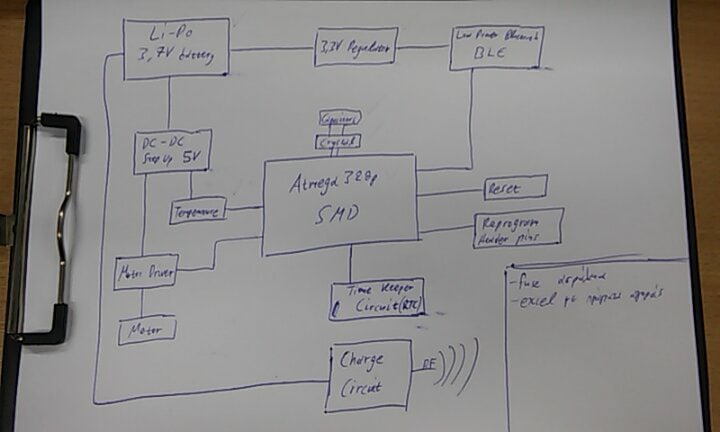 Li-Po
3,7V battery
3,3V Regulator
Low Power Bluetooth
BLE
Capacitors
Crystal
DC-DC
Step up 5V
Atmega 328p
SMD
Temperature
Reset
Reprogram
Header pins
Motor Driver
Motor
Time Keeper
Circuit (RTC)
Charge
Circuit
RF
-fuse
-excel με αγοράς